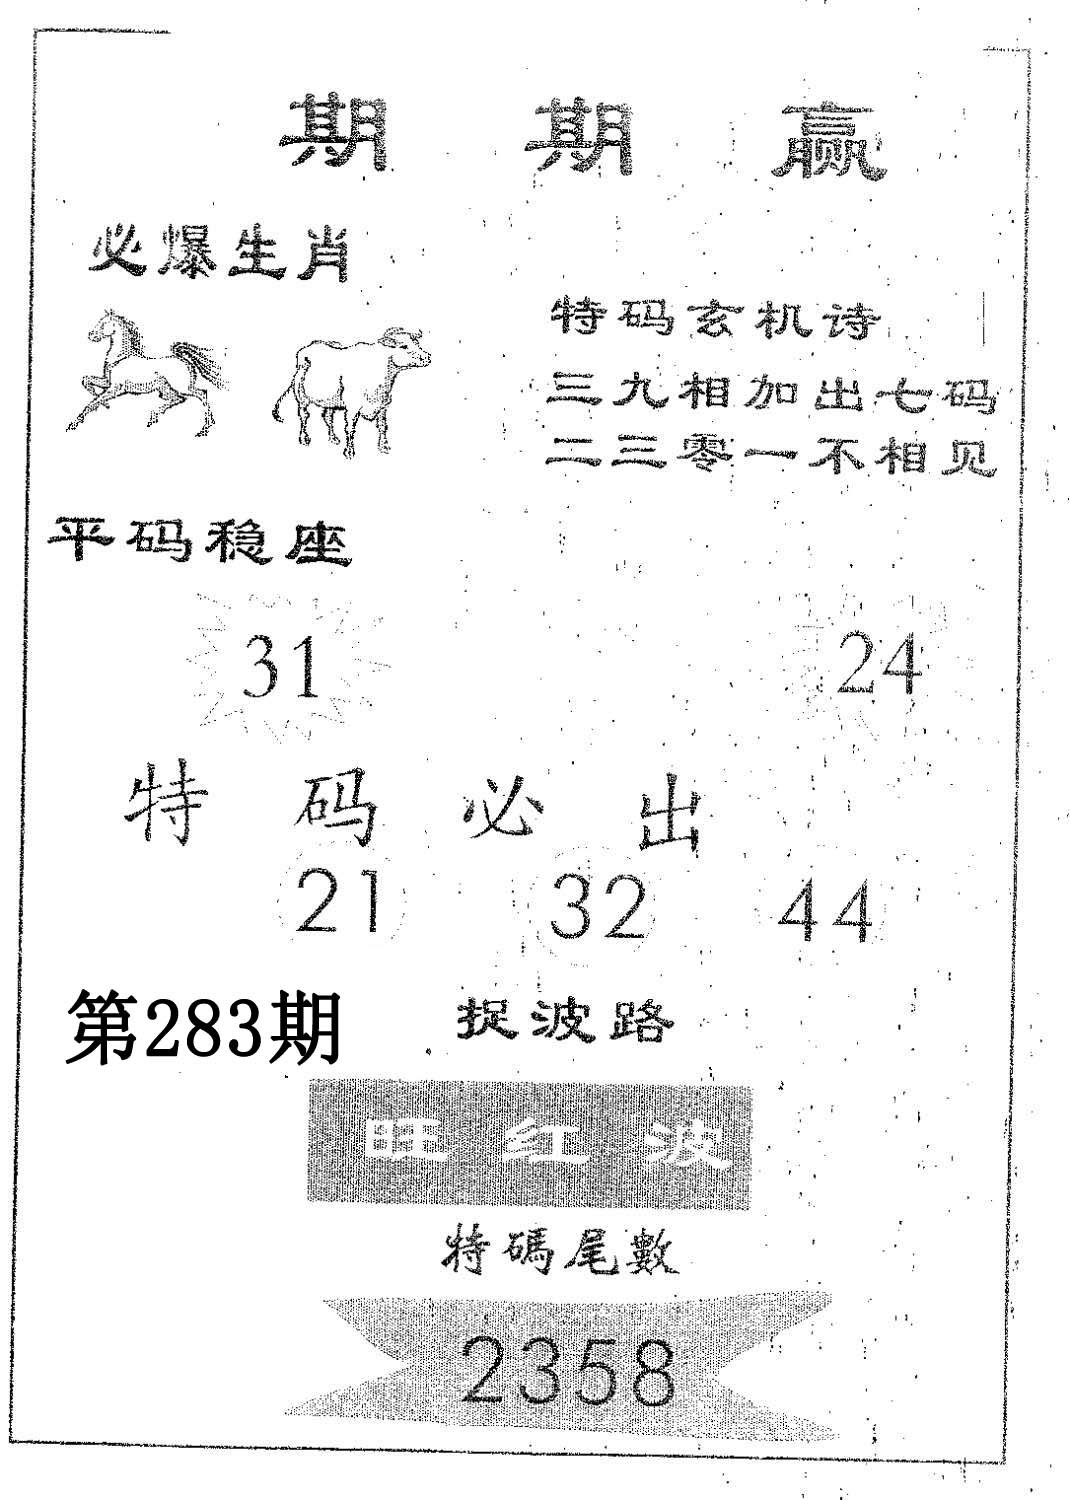 期期赢
必爆生肖
特码玄机诗
三九相加出七码
二三零一不相见
平码稳座
31 24
特码必出
21 32 44
第283期 捉波路
旺红波
特碼尾數
2358